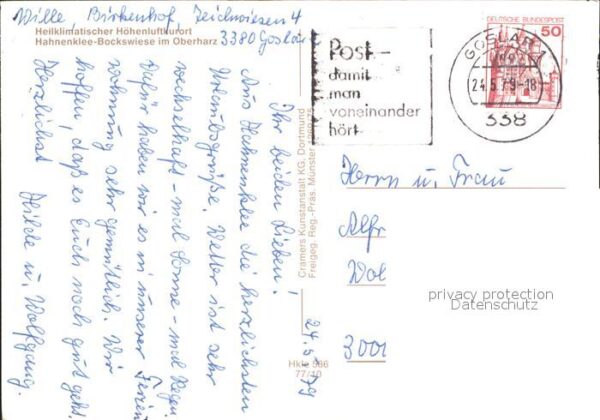 Wille, Birkenhof, Teichwiesen 4
3380 Goslar
Heilklimatischer Höhenluftkurort
Hahnenklee-Bockswiese im Oberharz
Post-
damit
man
voneinander
hört
GOSLAR 1
24.5.79-18
338
DEUTSCHE BUNDESPOST
50
24.5.79
Ihr beiden Lieben!
Aus Hahnenklee die herzlichsten
Urlaubsgrüße. Wetter ist sehr
wechselhaft - mal Sonne - mal Regen
dafür haben wir es in unserer Ferien
wohnung sehr gemütlich. Wir
hoffen, daß es Euch noch gut geht.
Herzlichst Hilde u. Wolfgang.
Cramers Kunstanstalt KG, Dortmund
Freigeg. Reg.-Präs. Münster
Hkle 586
77/10
Herrn u. Frau
Alfr
Wol
3001
privacy protection
Datenschutz